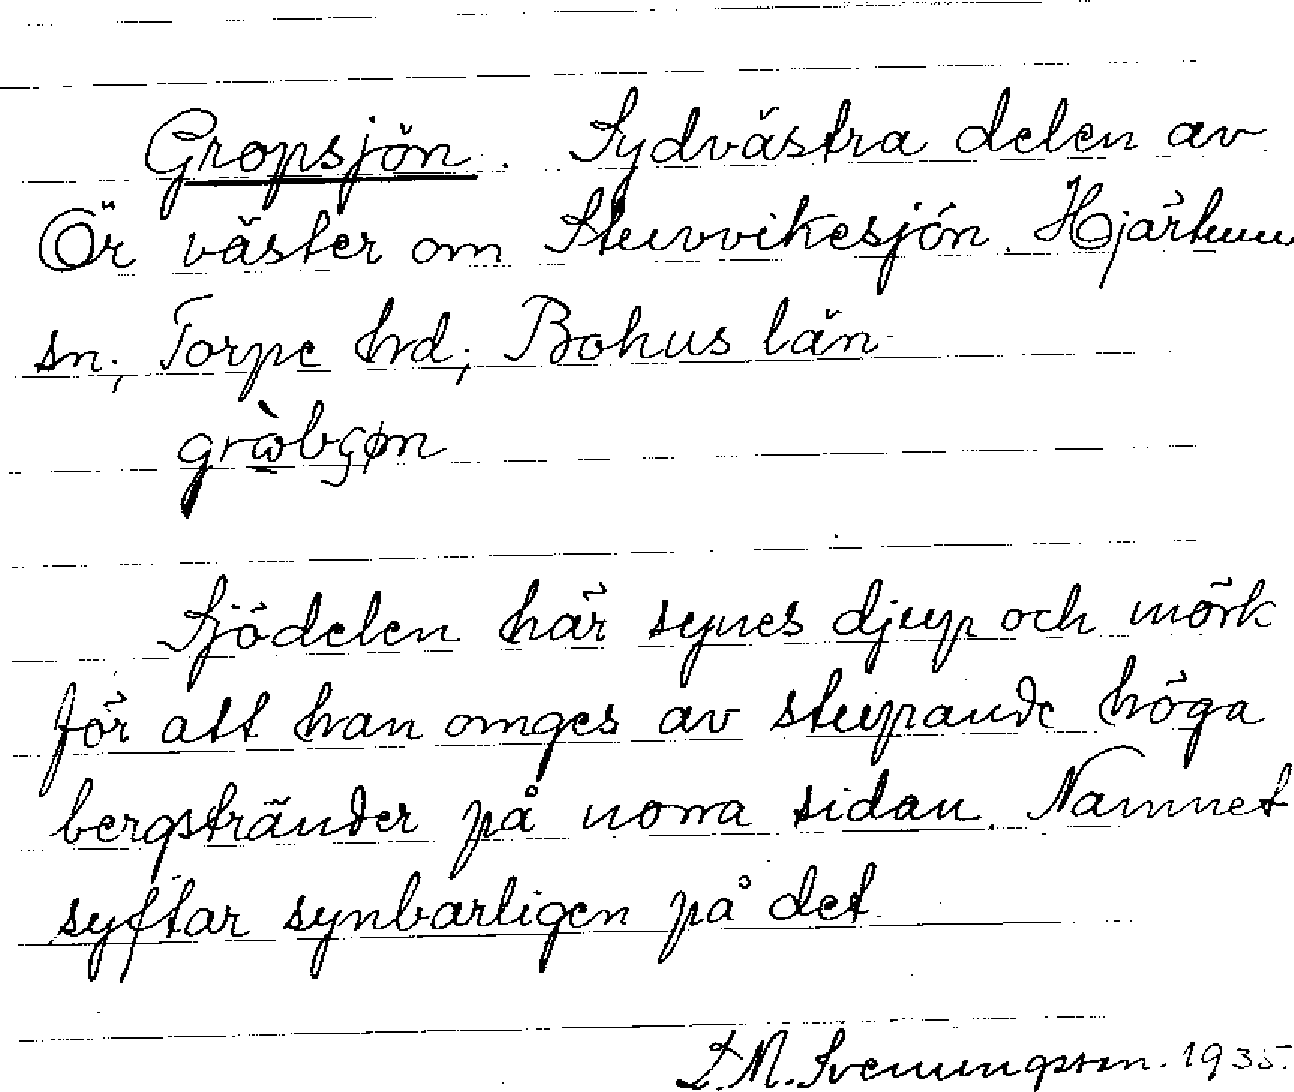 Gropsjön. Sydvästra delen av
Ör väster om Stuvvikesjön. Hjärtum
sn; Torpe hrd; Bohus län
Sjödelen här synes djup och mörk
för att han omges av stupande höga
bergstränder på norra sidan. Namnet
syftar synbarligen på det
M. Svenungsson. 1935.